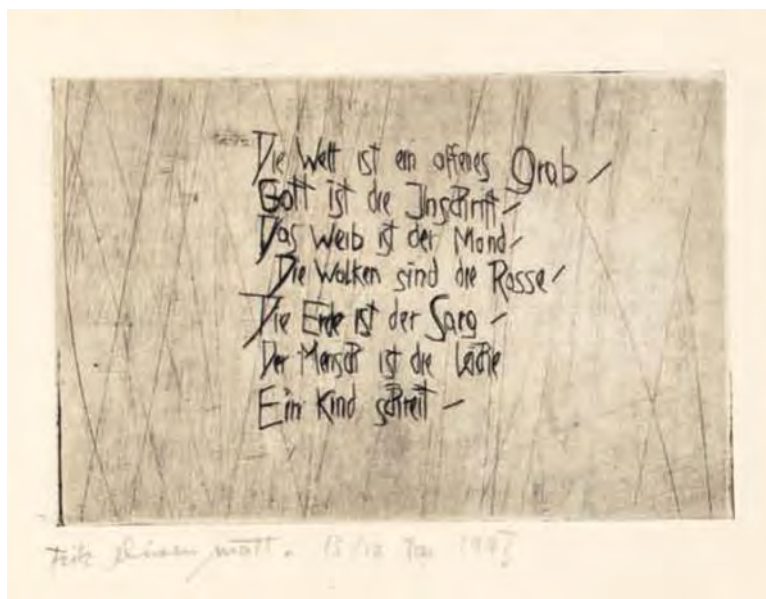 Die Welt ist ein offenes Grab –
Gott ist die Inschrift –
Das Weib ist der Mond –
Die Wolken sind die Rosse –
Die Erde ist der Sarg –
Der Mensch ist die Leiche
Ein Kind schreit –
Fritz Dürrenmatt.